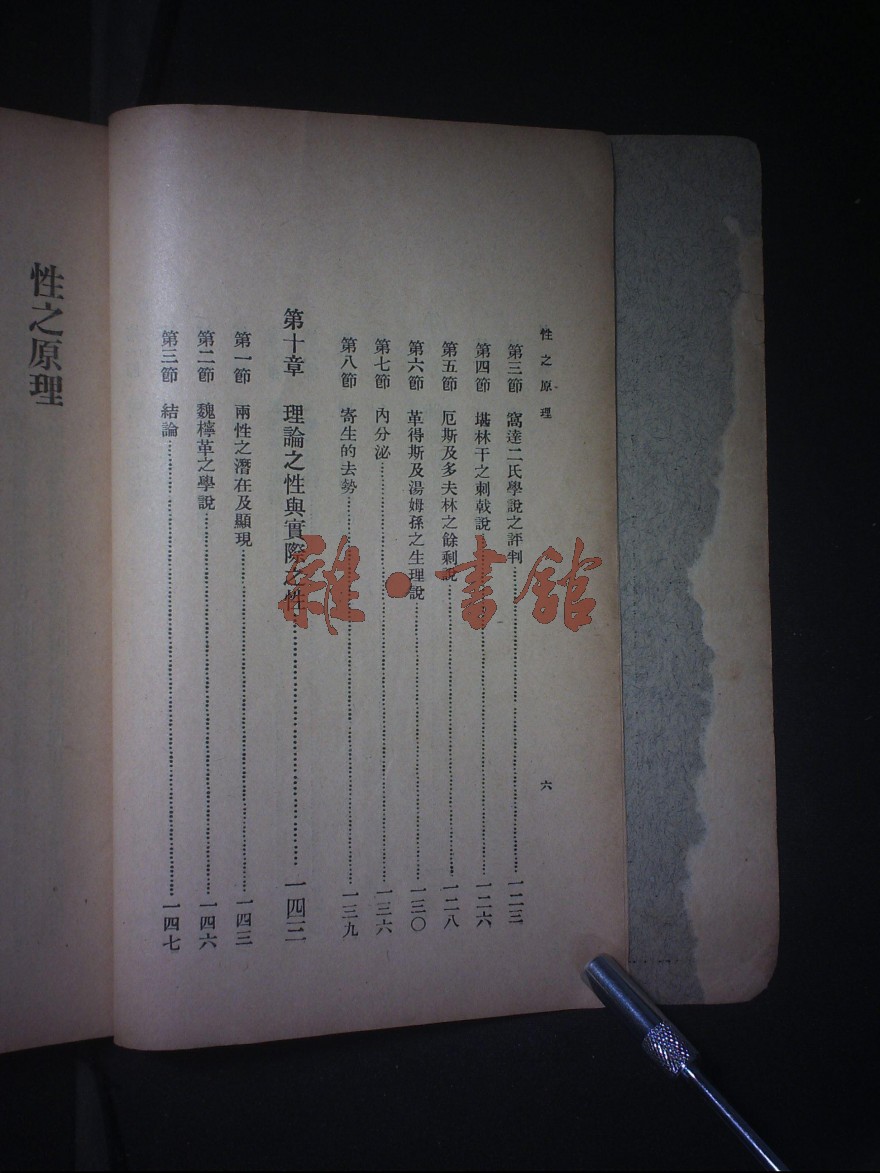 性之原理
六
第三節　窩達二氏學說之評判……一二三
第四節　塔林干之刺戟說……一二六
第五節　厄斯及多夫林之餘剩說……一二八
第六節　革得斯及湯姆孫之生理說……一三〇
第七節　內分泌……一三六
第八節　寄生的去勢……一三九
第十章　理論之性與實際之性……一四三
第一節　兩性之潛在及顯現……一四三
第二節　魏檸革之學說……一四六
第三節　結論……一四七
性之原理
雜·書館